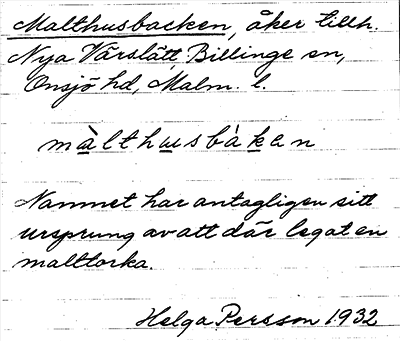 Malthusbacken, åker tillh.
Nya Vårslätt, Billinge sn,
Onsjö hd, Malm. l.
màlthusbàkan
Namnet har antagligen sitt
ursprung av att där legat en
malttorka.
Helga Persson 1932